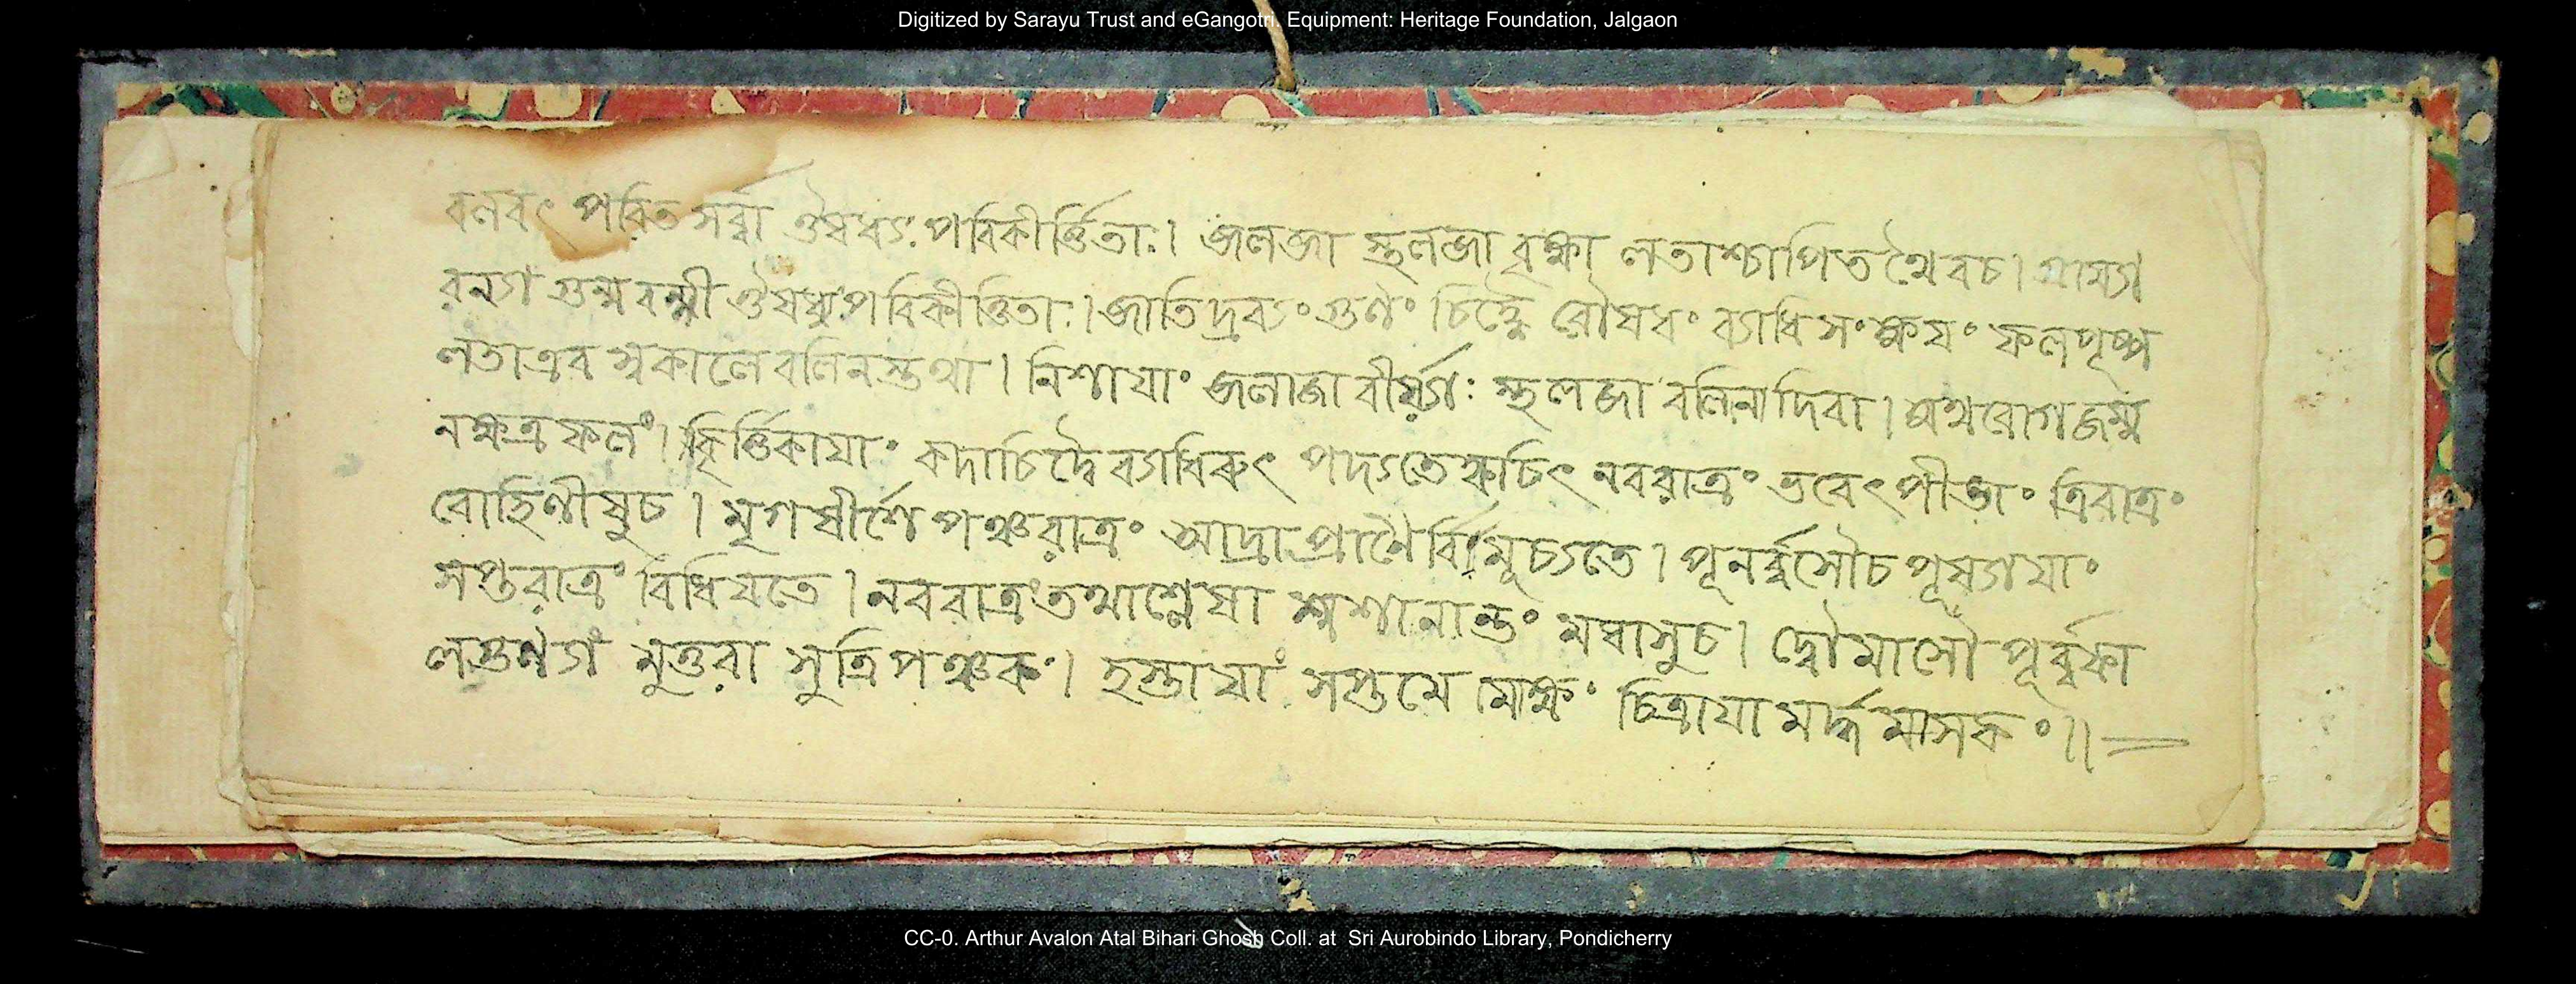 Digitized by Sarayu Trust and eGangotri. Equipment: Heritage Foundation, Jalgaon
পরিকীর্ত্তিতাঃ। জলজা স্থলজা বৃক্ষা লতাশ্চাপিত থৈবচ। গ্রাম্যা
রন্যা গুল্ম বল্মী ঔষধ্যঃ পরিকীর্ত্তিতাঃ। জাতিদ্রব্যং গুণং রৌষধং ব্যাধি সংক্ষয়ং ফলপুষ্প
লতাএব স্বকালে বলিনস্তথা। নিশায়াং জলাজা বীর্য্যাঃ স্থলজা বলিন্য দিবা। অথ রোগ জন্ম
নক্ষত্র ফলং। কৃর্ত্তিকায়াং কদাচিদ্দৈ নবরাত্রং ভবেৎ পীডাং ত্রিরাত্রং
রোহিণীষুচ। মৃগষীর্শে পঞ্চরাত্রং আদ্রা প্রাণৈর্বিমূচ্যতে। পূনর্ব্বসৌচ পূষ্যায়াং
সপ্তরাত্রং বিধিয়তে। নবরাত্রং তথাশ্লেষা শ্মশানান্তং মঘাসুচ। দ্বৌমাসৌ পূর্ব্বফা
লগুণ্যাং মুত্তরা সুত্রিপঞ্চকং। হস্তায়াং সপ্তমে মোক্ষং চিত্রায়া মর্দ্ধ মাসকং॥
CC-0. Arthur Avalon Atal Bihari Ghosh Coll. at Sri Aurobindo Library, Pondicherry